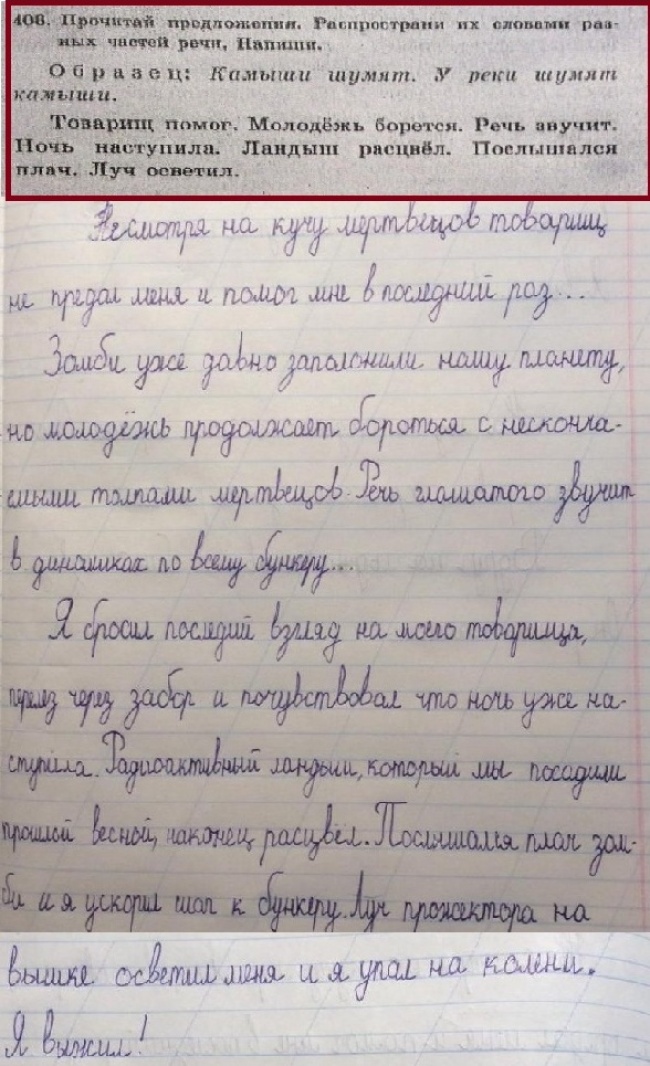 408. Прочитай предложения. Распространи их словами раз-
ных частей речи. Напиши.
Образец: Камыши шумят. У реки шумят
камыши.
Товарищ помог. Молодёжь борется. Речь звучит.
Ночь наступила. Ландыш расцвёл. Послышался
плач. Луч осветил.
Несмотря на кучу мертвецов товарищ
не предал меня и помог мне в последний раз...
Зомби уже давно заполонили нашу планету,
но молодёжь продолжает бороться с несконча-
емыми толпами мертвецов. Речь глашатого звучит
в динамиках по всему бункеру...
Я бросил последий взгляд на моего товарища,
перелез через забор и почувствовал что ночь уже на-
ступила. Радиоактивный ландыш, который мы посадили
прошлой весной, наконец расцвёл. Послышался плач зом-
би и я ускорил шаг к бункеру. Луч прожектора на
вышке осветил меня и я упал на колени.
Я выжил!